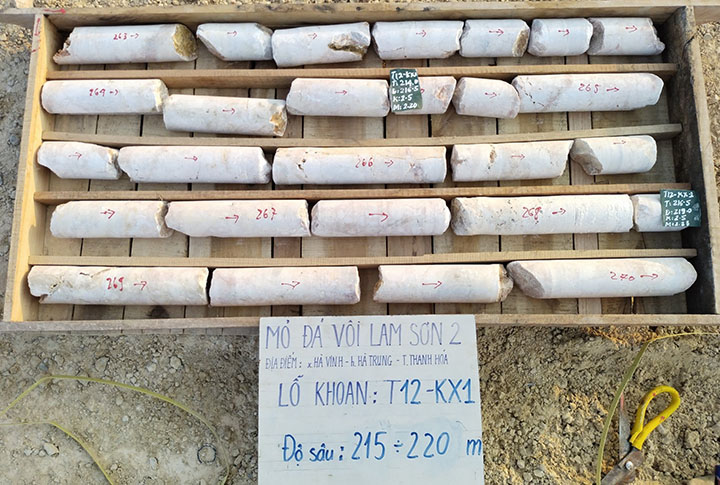 263 →
→
→
→
→
→
→
264 →
→
→
T12-KX1
T: 214.0
Đ: 216.5
K: 2.5
M: 2.20
→
→
265 →
→
→
266
→
→
→
→
267
→
→
268
→
T12-KX1
T: 216.5
Đ: 219.0
K: 2.5
269
→
→
→
270
→
MỎ ĐÁ VÔI LAM SƠN 2
ĐỊA ĐIỂM : x. HÀ VINH - h. HÀ TRUNG - T. THANH HOÁ
LỖ KHOAN : T12-KX1
Độ sâu : 215 ÷ 220 m